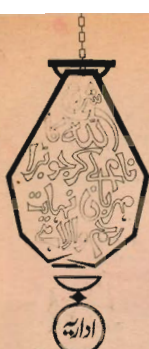 شروع
اللہ کے
نام سے جو بڑا
مہربان نہایت
رحم والا ہے
اداریہ